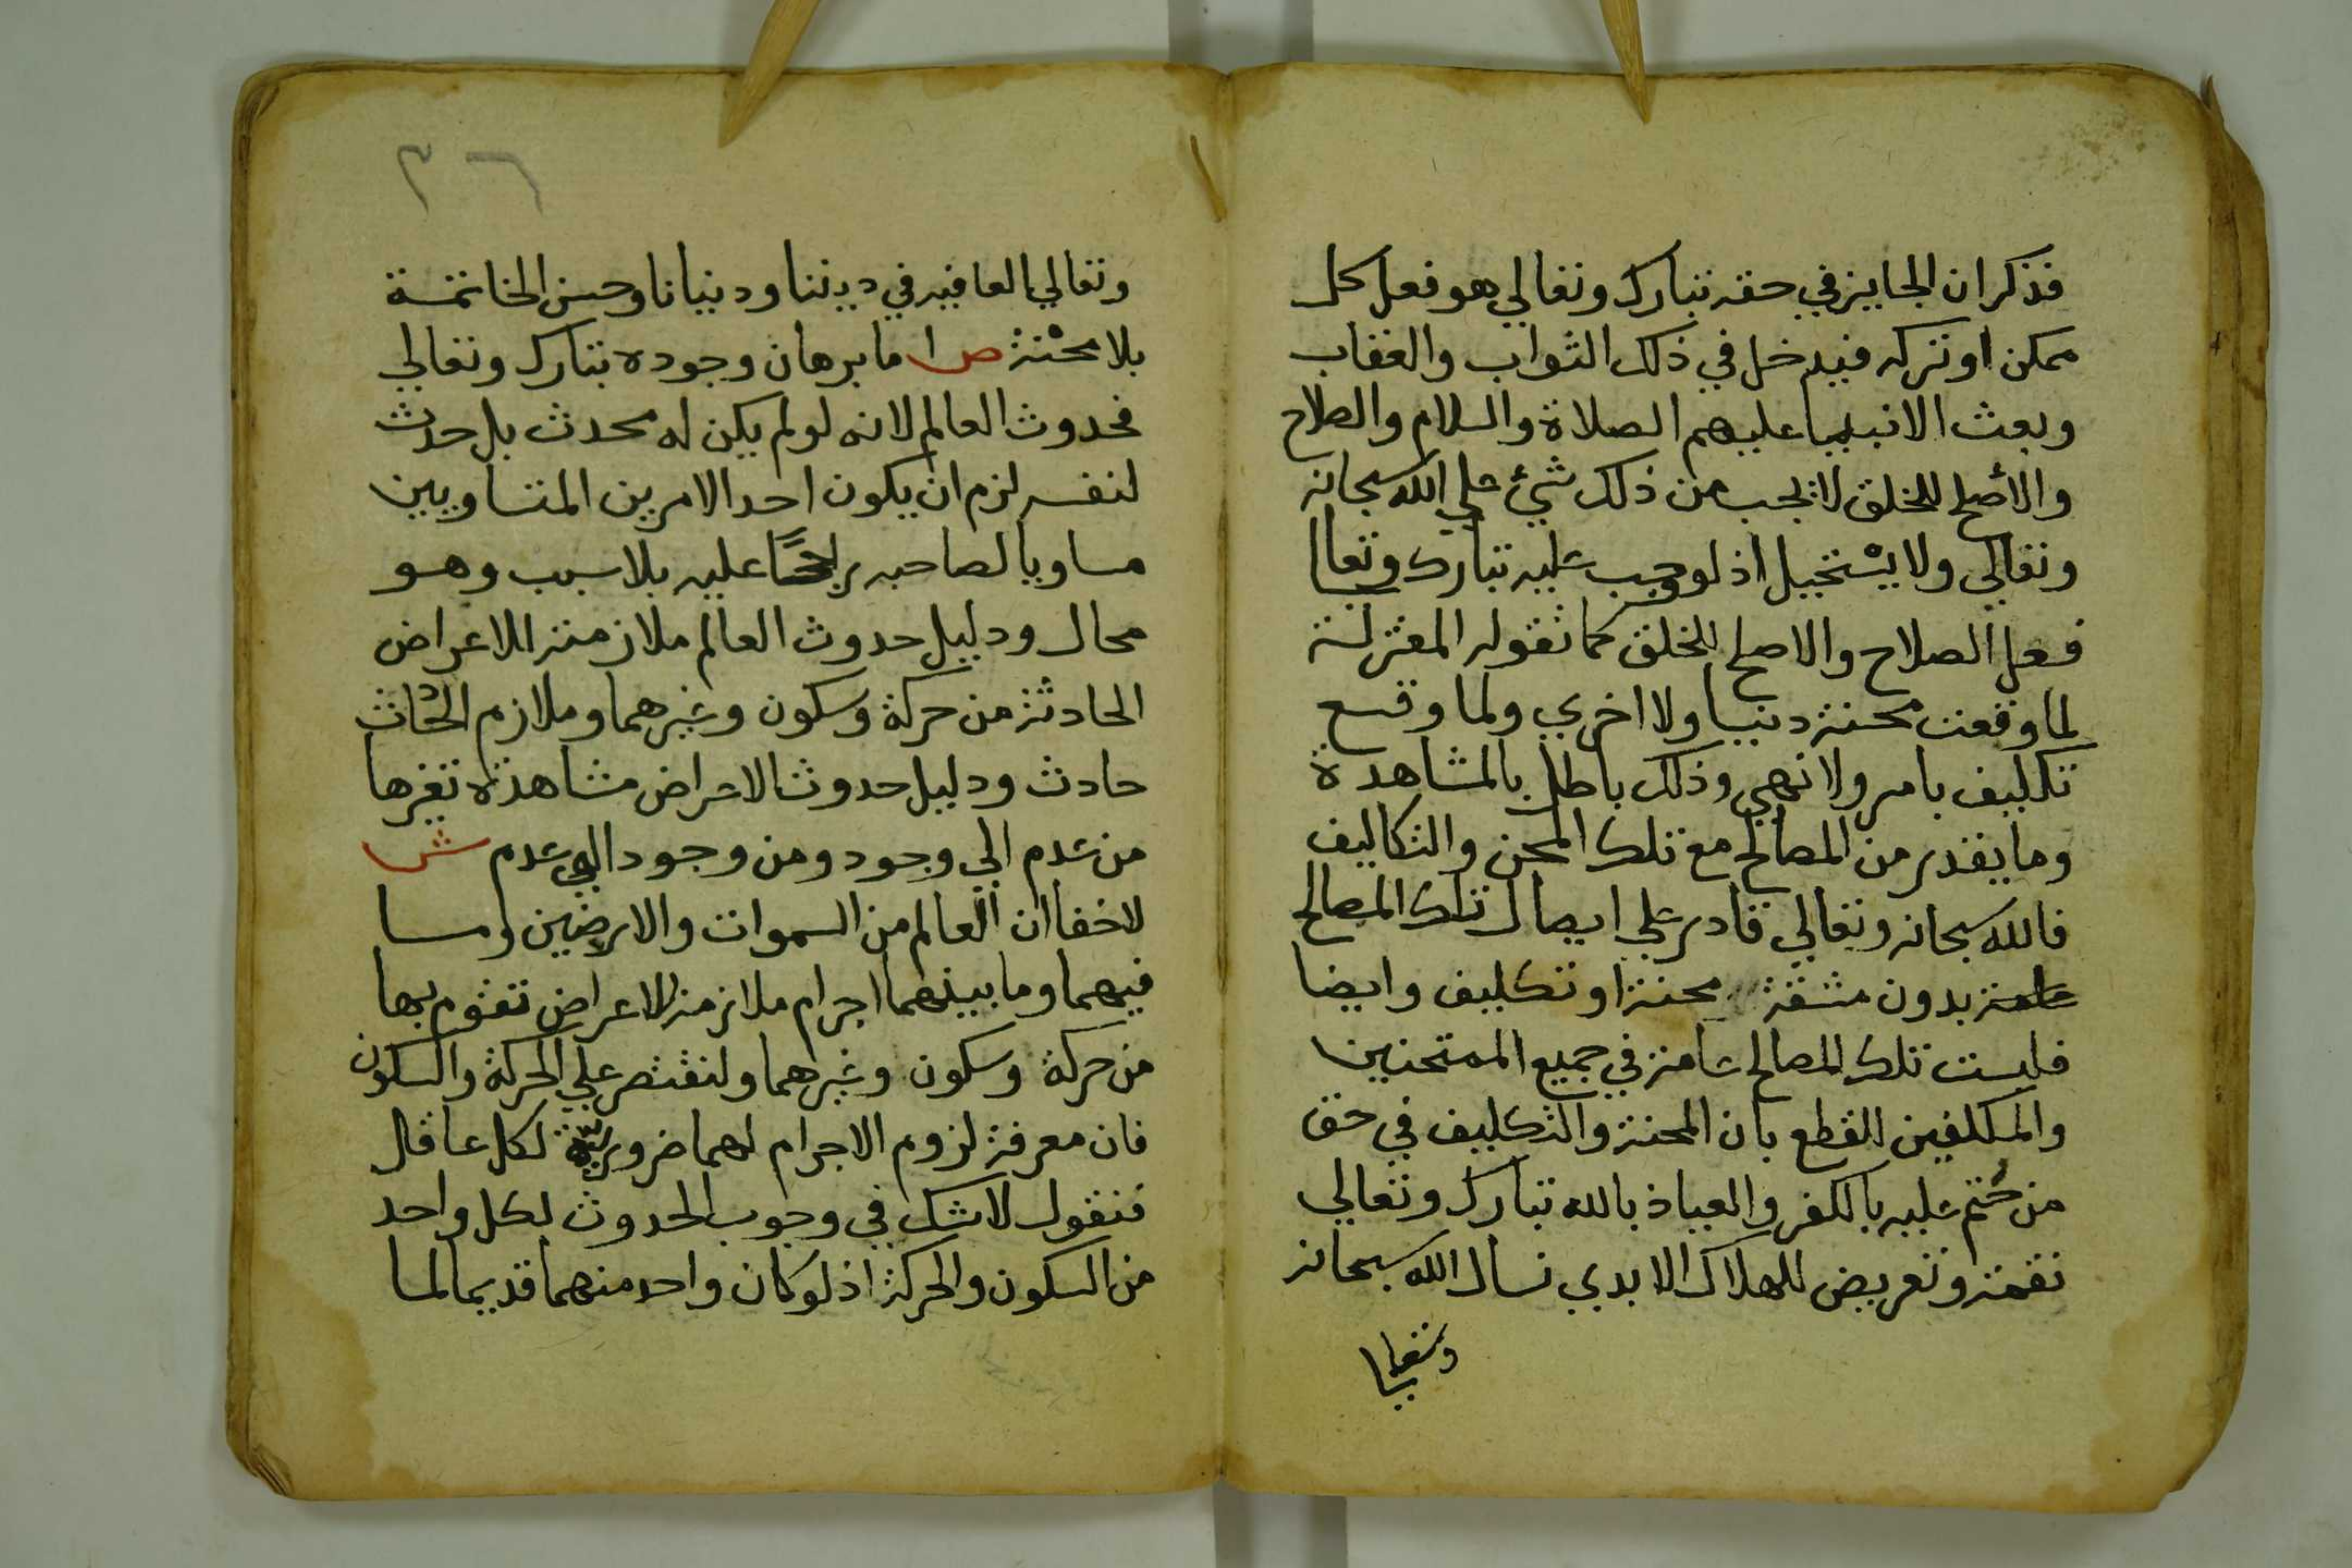 فذكر ان الجايز في حقه تبارك وتعالي هو فعل كل
ممكن او تركه فيدخل في ذلك الثواب والعقاب
وبعث الانبيا عليهم الصلاة والسلام والصلاح
والأصلح للخلق لا يجب من ذلك شيئ علي الله سبحانه
وتعالي ولا يسْتحيل اذ لو وجب عليه تبارك وتعالي
فعل الصلاح والاصلح للخلق كما تقوله المعتزلة
لما وقعت محنة دنيا ولا اخري ولما وقع
تكليف بامر ولا نهي وذلك باطل بالمشاهدة
وما يقدر من المصالح مع تلك المحن والتكاليف
فالله سبحانه وتعالي قادر علي ايصال تلك المصالح
بدون مشقة محنة او تكليف وايضا
فليست تلك المصالح عامة في جميع الممتحنين
والمكلفين للقطع بان المحنة والتكليف في حق
من خُتم عليه بالكفر والعياذ بالله تبارك وتعالي
نقمة وتعريض للهلاك الابدي نسال الله سبحانه
وتعالي
٣٦
وتعالي العافيه في ديننا ودنيانا وحسن الخاتمة
بلا محْنة ص اما برهان وجوده تبارك وتعالي
فحدوث العالم لانه لو لم يكن له محدث بل حدث
لنفسه لزم ان يكون احد الامرين المتساويين
مساويا لصاحبه راجحًا عليه بلا سبب وهو
محال ودليل حدوث العالم ملازمته للاعراض
الحادثة من حركة وسكون وغيرهما وملازم الحادث
حادث ودليل حدوث الاعراض مشاهدة تغيرها
من عدم الي وجود ومن وجود الي عدم ش
لا خفا ان العالم من السموات والارضين وما
فيهما وما بينهما اجرام ملازمة للاعراض تقوم بها
من حركة وسكون وغيرهما ولنقتصر علي الحركة والسكون
فان معرفة لزوم الاجرام لهما ضرورية لكل عاقل
فنقول لا شك في وجوب الحدوث لكل واحد
من السكون والحركة اذ لو كان واحد منهما قديما لما